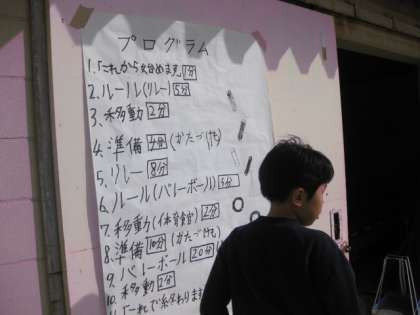 プログラム
1.「これから始めます」1分
2.ルール(リレー) 5分
3.移動 2分
4.準備 4分 (かたづけも)
5.リレー 8分
6.ルール(バレーボール) 5分
7.移動(体育館) 2分
8.準備 10分 (かたづけも)
9.バレーボール 20分
10.移動 2分
11.「これで終わります